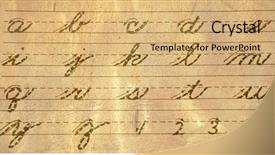 a b c d e
Crystal
Templates for PowerPoint
i j k l m
q r s t u
y z 1 2 3